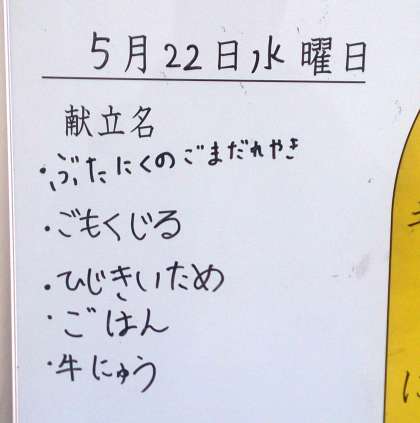 5月22日水曜日
献立名
・ぶたにくのごまだれやき
・ごもくじる
・ひじきいため
・ごはん
・牛にゅう